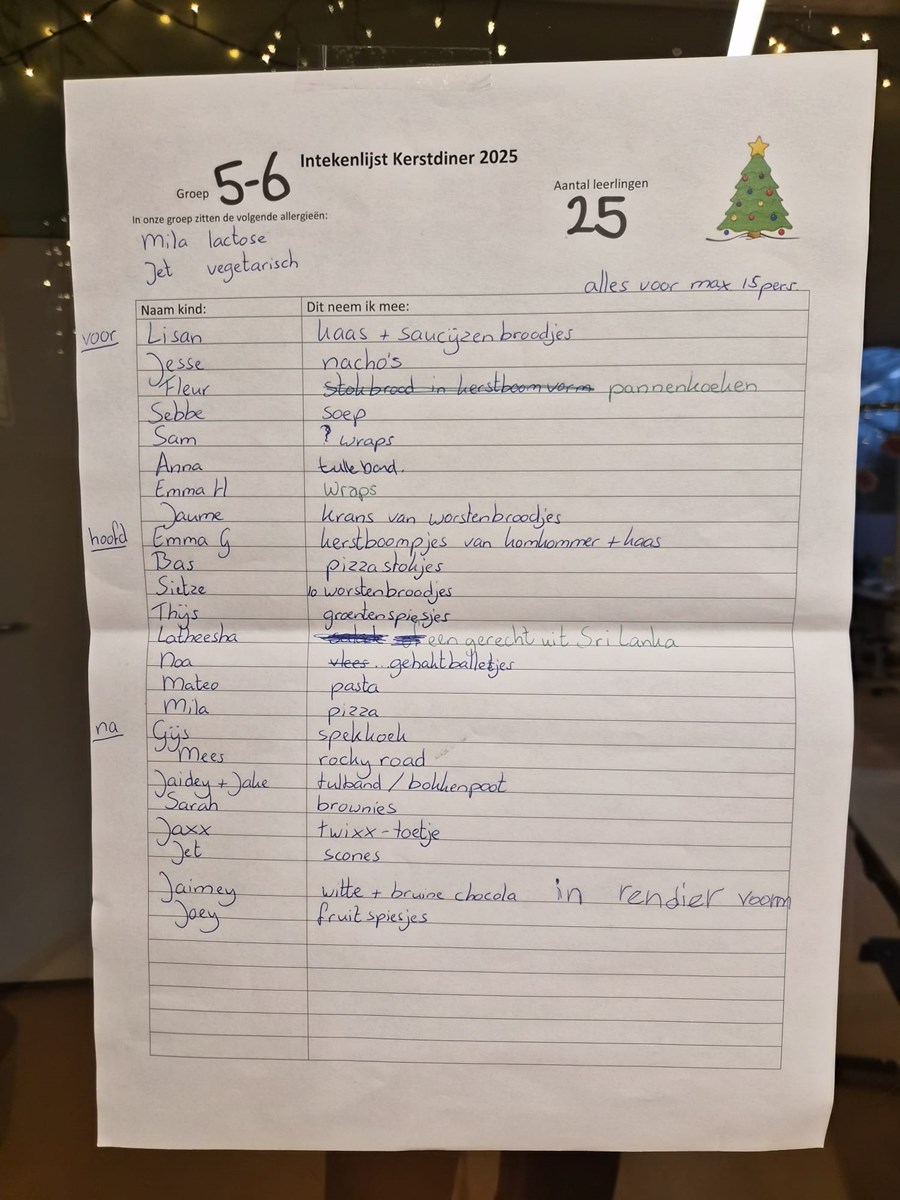 Intekenlijst Kerstdiner 2025
Groep 5-6
Aantal leerlingen
25
In onze groep zitten de volgende allergieën:
Mila lactose
Jet vegetarisch
alles voor max 15 pers.
Naam kind: Dit neem ik mee:
voor Lisan kaas + saucijzenbroodjes
Jesse nacho's
Fleur Stokbrood in kerstboomvorm pannenkoeken
Sebbe soep
Sam ? wraps
Anna tulleband.
Emma H Wraps
Jaume krans van worstenbroodjes
hoofd Emma G kerstboompjes van komkommer + kaas
Bas pizzastokjes
Sietze 10 worstenbroodjes
Thijs groentenspiesjes
Latheesha een gerecht uit Sri Lanka
Noa vlees.. gehaktballetjes
Mateo pasta
Mila pizza
na Gijs spekkoek
Mees rocky road
Jaidey + Jake tulband / bokkenpoot
Sarah brownies
Jaxx twixx-toetje
Jet scones
Jaimey witte + bruine chocola in rendier voorm
Joey fruitspiesjes